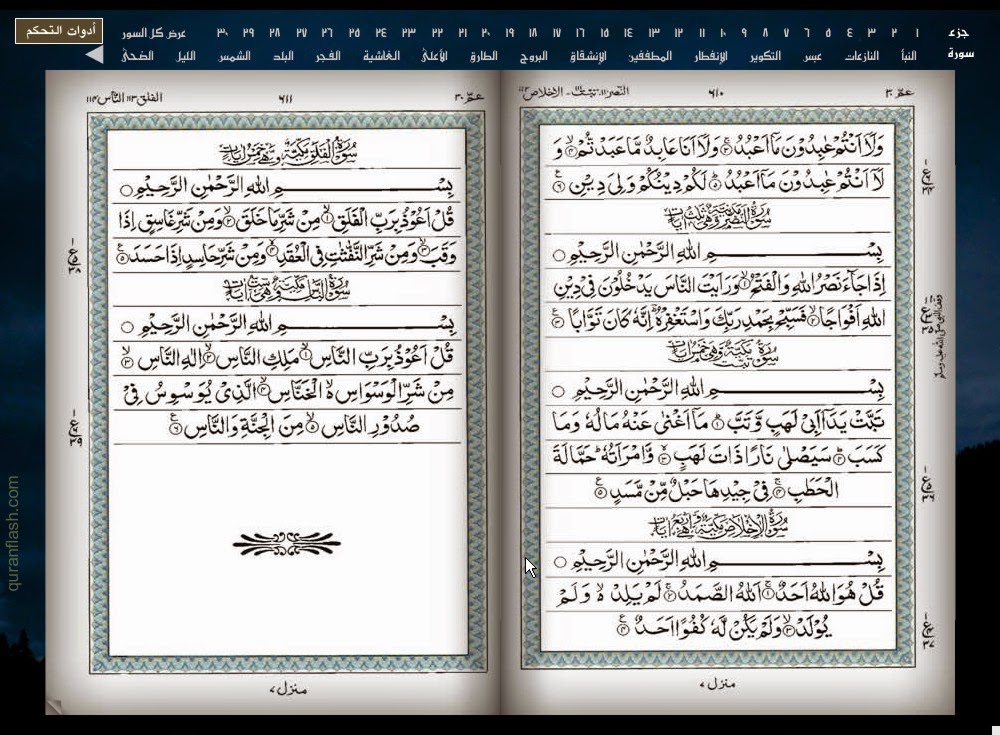 أدوات التحكم
جزء ١ ٢ ٣ ٤ ٥ ٦ ٧ ٨ ٩ ١٠ ١١ ١٢ ١٣ ١٤ ١٥ ١٦ ١٧ ١٨ ١٩ ٢٠ ٢١ ٢٢ ٢٣ ٢٤ ٢٥ ٢٦ ٢٧ ٢٨ ٢٩ ٣٠ عرض كل السور
سورة النبأ النازعات عبس التكوير الإنفطار المطففين الإنشقاق البروج الطارق الأعلى الغاشية الفجر البلد الشمس الليل الضحى
عمّ ٣٠
٦١٠
النصر ١١٠ تبت ١١١ - الإخلاص ١١٢
وَلَآ اَنْتُمْ عٰبِدُوْنَ مَآ اَعْبُدُ ۚ﴿۳﴾ وَلَآ اَنَا عَابِدٌ مَّا عَبَدْتُّمْ ۙ﴿۴﴾ وَ
لَآ اَنْتُمْ عٰبِدُوْنَ مَآ اَعْبُدُ ؕ﴿۵﴾ لَكُمْ دِيْنُكُمْ وَلِيَ دِيْنِ ﴿۶﴾
سُوْرَةُ النَّصْرِ مَدَنِيَّةٌ وَّهِيَ ثَلٰثُ اٰيَاتٍ
بِسْــــــــــمِ اللهِ الرَّحْمٰنِ الرَّحِيْمِ ○
اِذَا جَآءَ نَصْرُ اللهِ وَالْفَتْحُ ۙ﴿۱﴾ وَرَاَيْتَ النَّاسَ يَدْخُلُوْنَ فِيْ دِيْنِ
اللهِ اَفْوَاجًا ۙ﴿۲﴾ فَسَبِّحْ بِحَمْدِ رَبِّكَ وَاسْتَغْفِرْهُ ؕ اِنَّهٗ كَانَ تَوَّابًا ﴿۳﴾
سُوْرَةُ تَبَّتْ مَكِّيَّةٌ وَّهِيَ خَمْسُ اٰيَاتٍ
بِسْــــــــــمِ اللهِ الرَّحْمٰنِ الرَّحِيْمِ ○
تَبَّتْ يَدَآ اَبِيْ لَهَبٍ وَّتَبَّ ؕ﴿۱﴾ مَآ اَغْنٰى عَنْهُ مَالُهٗ وَمَا
كَسَبَ ؕ﴿۲﴾ سَيَصْلٰى نَارًا ذَاتَ لَهَبٍ ۚ﴿۳﴾ وَّامْرَاَتُهٗ ؕ حَمَّالَةَ
الْحَطَبِ ۚ﴿۴﴾ فِيْ جِيْدِهَا حَبْلٌ مِّنْ مَّسَدٍ ﴿۵﴾
سُوْرَةُ الْاِخْلَاصِ مَكِّيَّةٌ وَّهِيَ اَرْبَعُ اٰيَاتٍ
بِسْــــــــــمِ اللهِ الرَّحْمٰنِ الرَّحِيْمِ ○
قُلْ هُوَ اللهُ اَحَدٌ ۚ﴿۱﴾ اَللهُ الصَّمَدُ ۚ﴿۲﴾ لَمْ يَلِدْ ۙ۬ وَلَمْ
يُوْلَدْ ۙ﴿۳﴾ وَلَمْ يَكُنْ لَّهٗ كُفُوًا اَحَدٌ ﴿۴﴾
منزل ٧
عمّ ٣٠
٦١١
الفلق ١١٣ الناس ١١٤
سُوْرَةُ الْفَلَقِ مَكِّيَّةٌ وَّهِيَ خَمْسُ اٰيَاتٍ
بِسْــــــــــمِ اللهِ الرَّحْمٰنِ الرَّحِيْمِ ○
قُلْ اَعُوْذُ بِرَبِّ الْفَلَقِ ۙ﴿۱﴾ مِنْ شَرِّ مَا خَلَقَ ۙ﴿۲﴾ وَمِنْ شَرِّ غَاسِقٍ اِذَا
وَقَبَ ۙ﴿۳﴾ وَمِنْ شَرِّ النَّفّٰثٰتِ فِي الْعُقَدِ ۙ﴿۴﴾ وَمِنْ شَرِّ حَاسِدٍ اِذَا حَسَدَ ﴿۵﴾
سُوْرَةُ النَّاسِ مَكِّيَّةٌ وَّهِيَ سِتُّ اٰيَاتٍ
بِسْــــــــــمِ اللهِ الرَّحْمٰنِ الرَّحِيْمِ ○
قُلْ اَعُوْذُ بِرَبِّ النَّاسِ ۙ﴿۱﴾ مَلِكِ النَّاسِ ۙ﴿۲﴾ اِلٰهِ النَّاسِ ۙ﴿۳﴾
مِنْ شَرِّ الْوَسْوَاسِ ۙ۬ الْخَنَّاسِ ۙ﴿۴﴾ الَّذِيْ يُوَسْوِسُ فِيْ
صُدُوْرِ النَّاسِ ۙ﴿۵﴾ مِنَ الْجِنَّةِ وَالنَّاسِ ﴿۶﴾
منزل ٧
quranflash.com